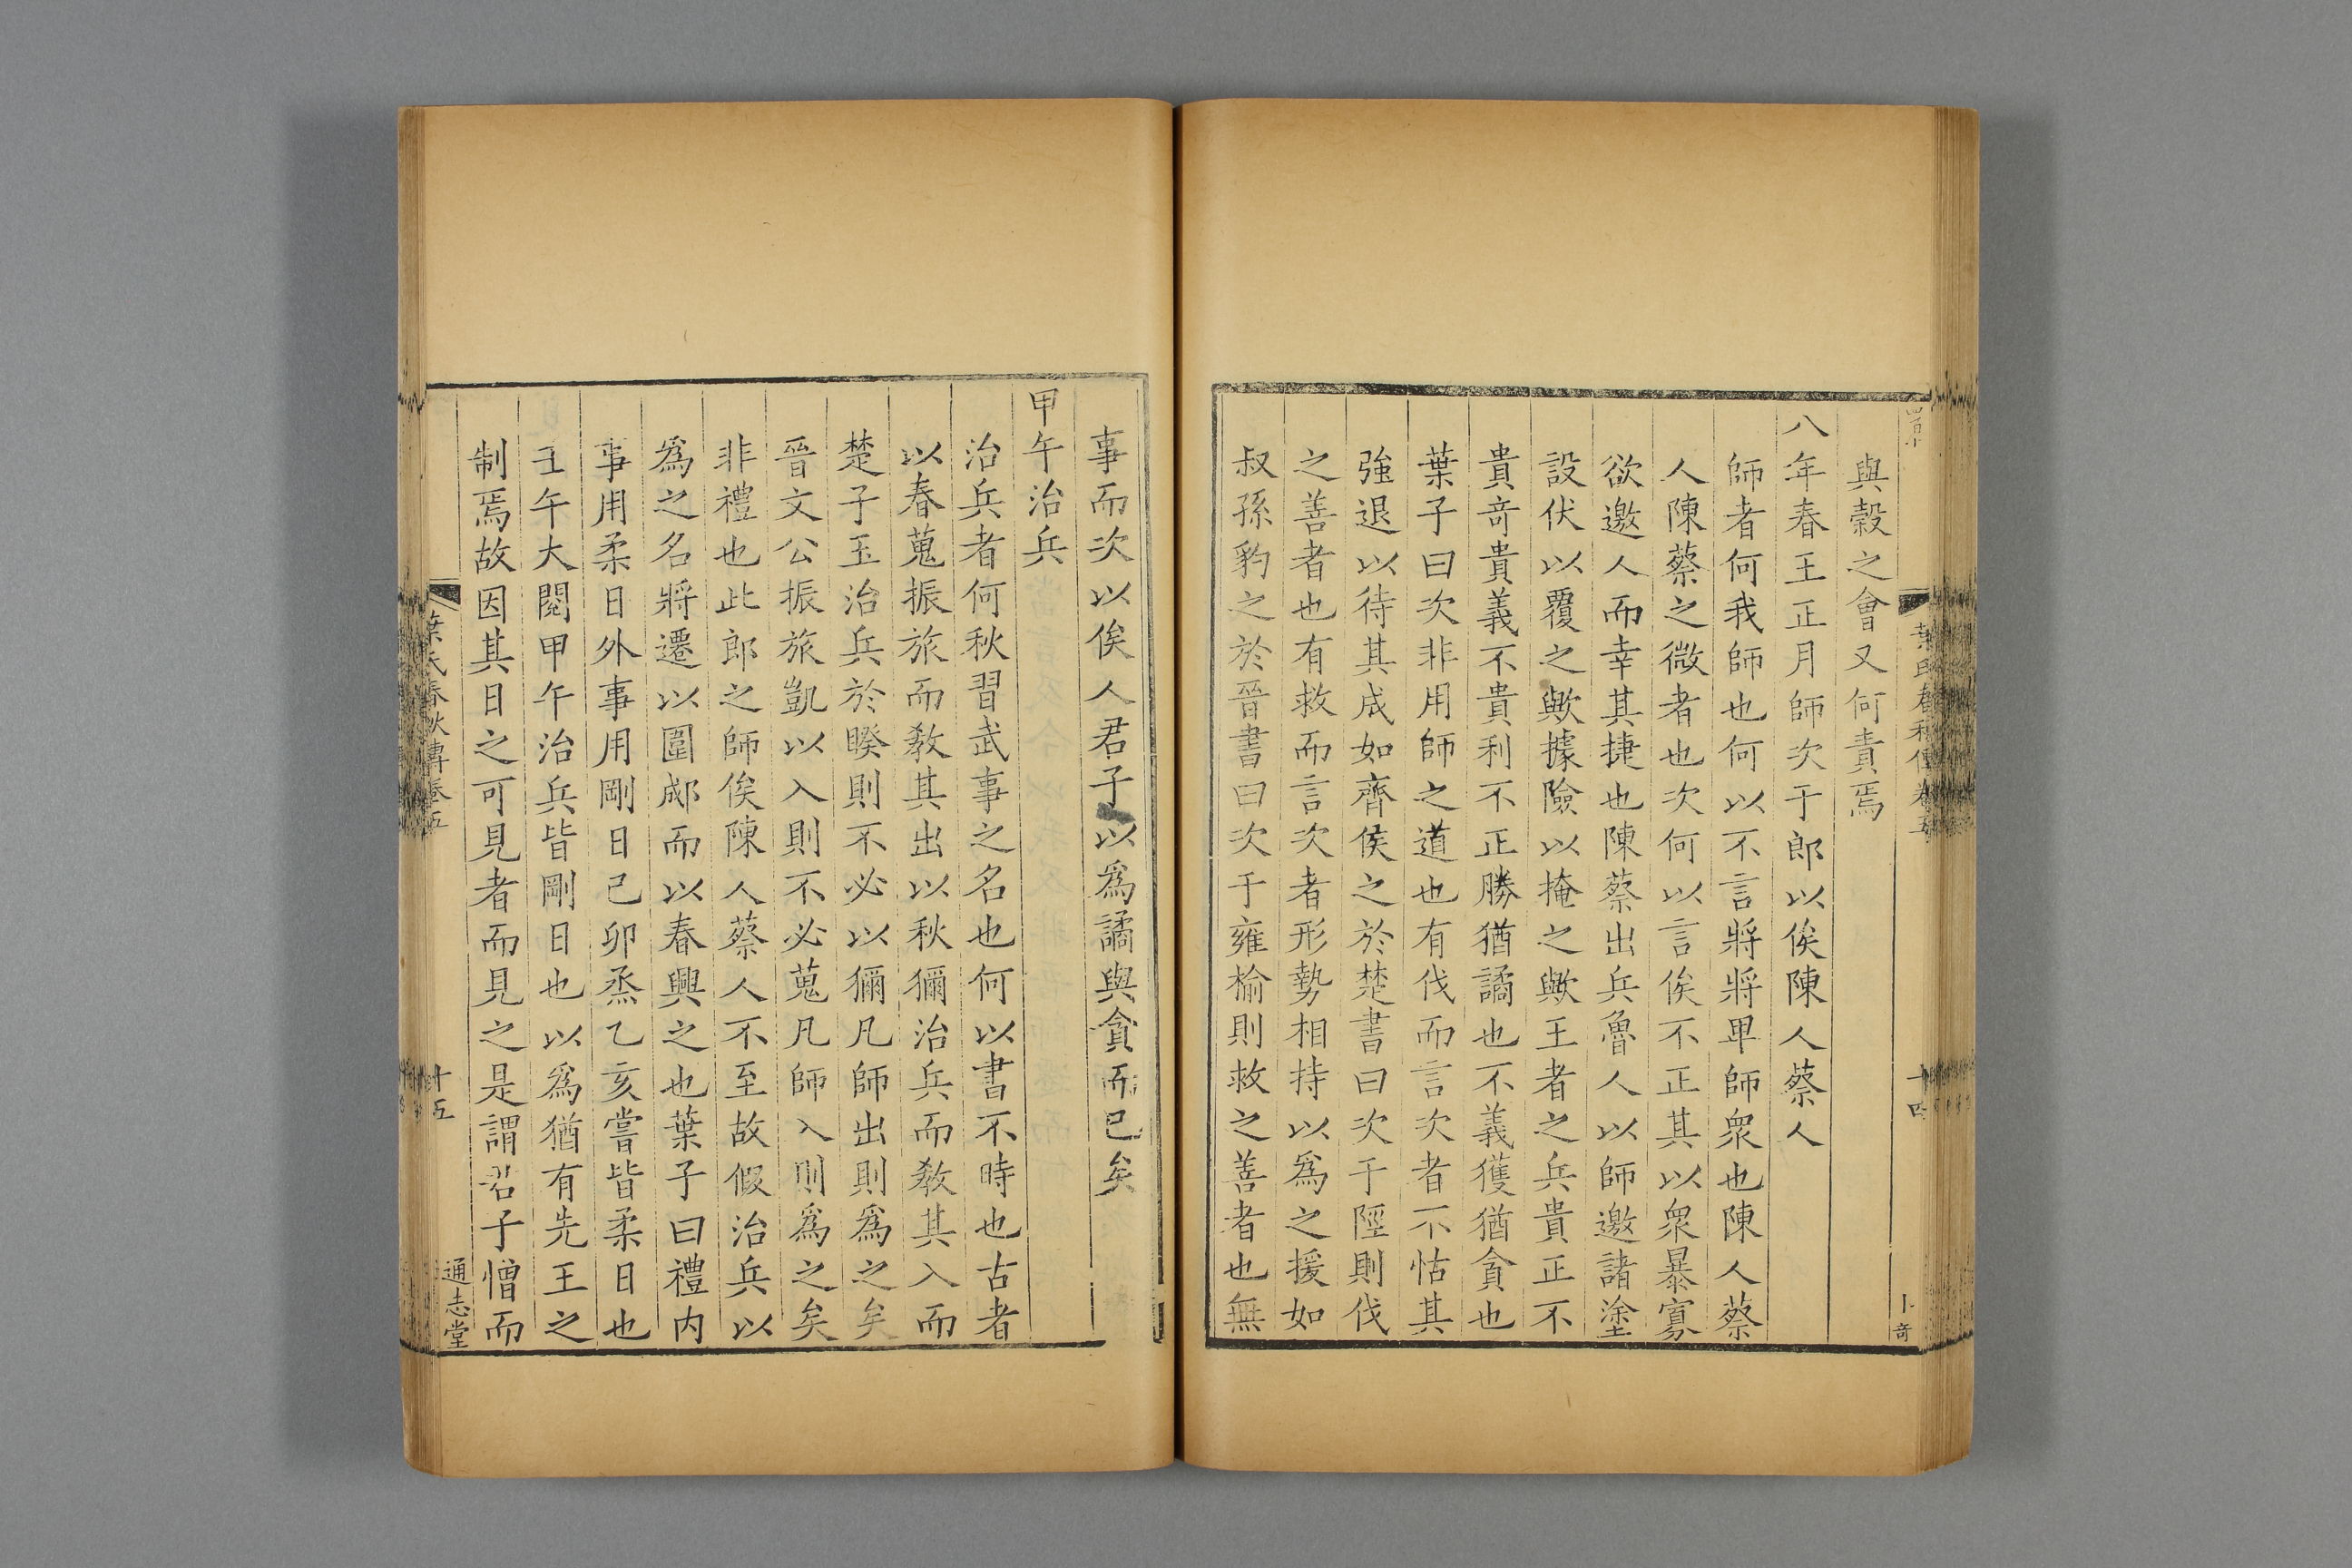 與穀之會又何責焉
八年春王正月師次于郎以俟陳人蔡人
師者何我師也何以不言將將卑師衆也陳人蔡
人陳蔡之微者也次何以言俟不正其以衆暴寡
欲邀人而幸其捷也陳蔡出兵魯人以師邀諸塗
設伏以覆之歟據險以掩之歟王者之兵貴正不
貴奇貴義不貴利不正勝猶譎也不義獲猶貪也
葉子曰次非用師之道也有伐而言次者不怙其
強退以待其成如齊侯之於楚書曰次于陘則伐
之善者也有救而言次者形勢相持以爲之援如
叔孫豹之於晉書曰次于雍榆則救之善者也無
事而次以俟人君子以爲譎與貪而已矣
甲午治兵
治兵者何秋習武事之名也何以書不時也古者
以春蒐振旅而教其出以秋獮治兵而教其入而
楚子玉治兵於睽則不必以獮凡師出則爲之矣
晉文公振旅凱以入則不必蒐凡師入則爲之矣
非禮也此郎之師俟陳人蔡人不至故假治兵以
爲之名將遷以圍郕而以春興之也葉子曰禮内
事用柔日外事用剛日己卯烝乙亥嘗皆柔日也
壬午大閱甲午治兵皆剛日也以爲猶有先王之
制焉故因其日之可見者而見之是謂君子憎而
葉氏春秋傳卷五
十五
通志堂